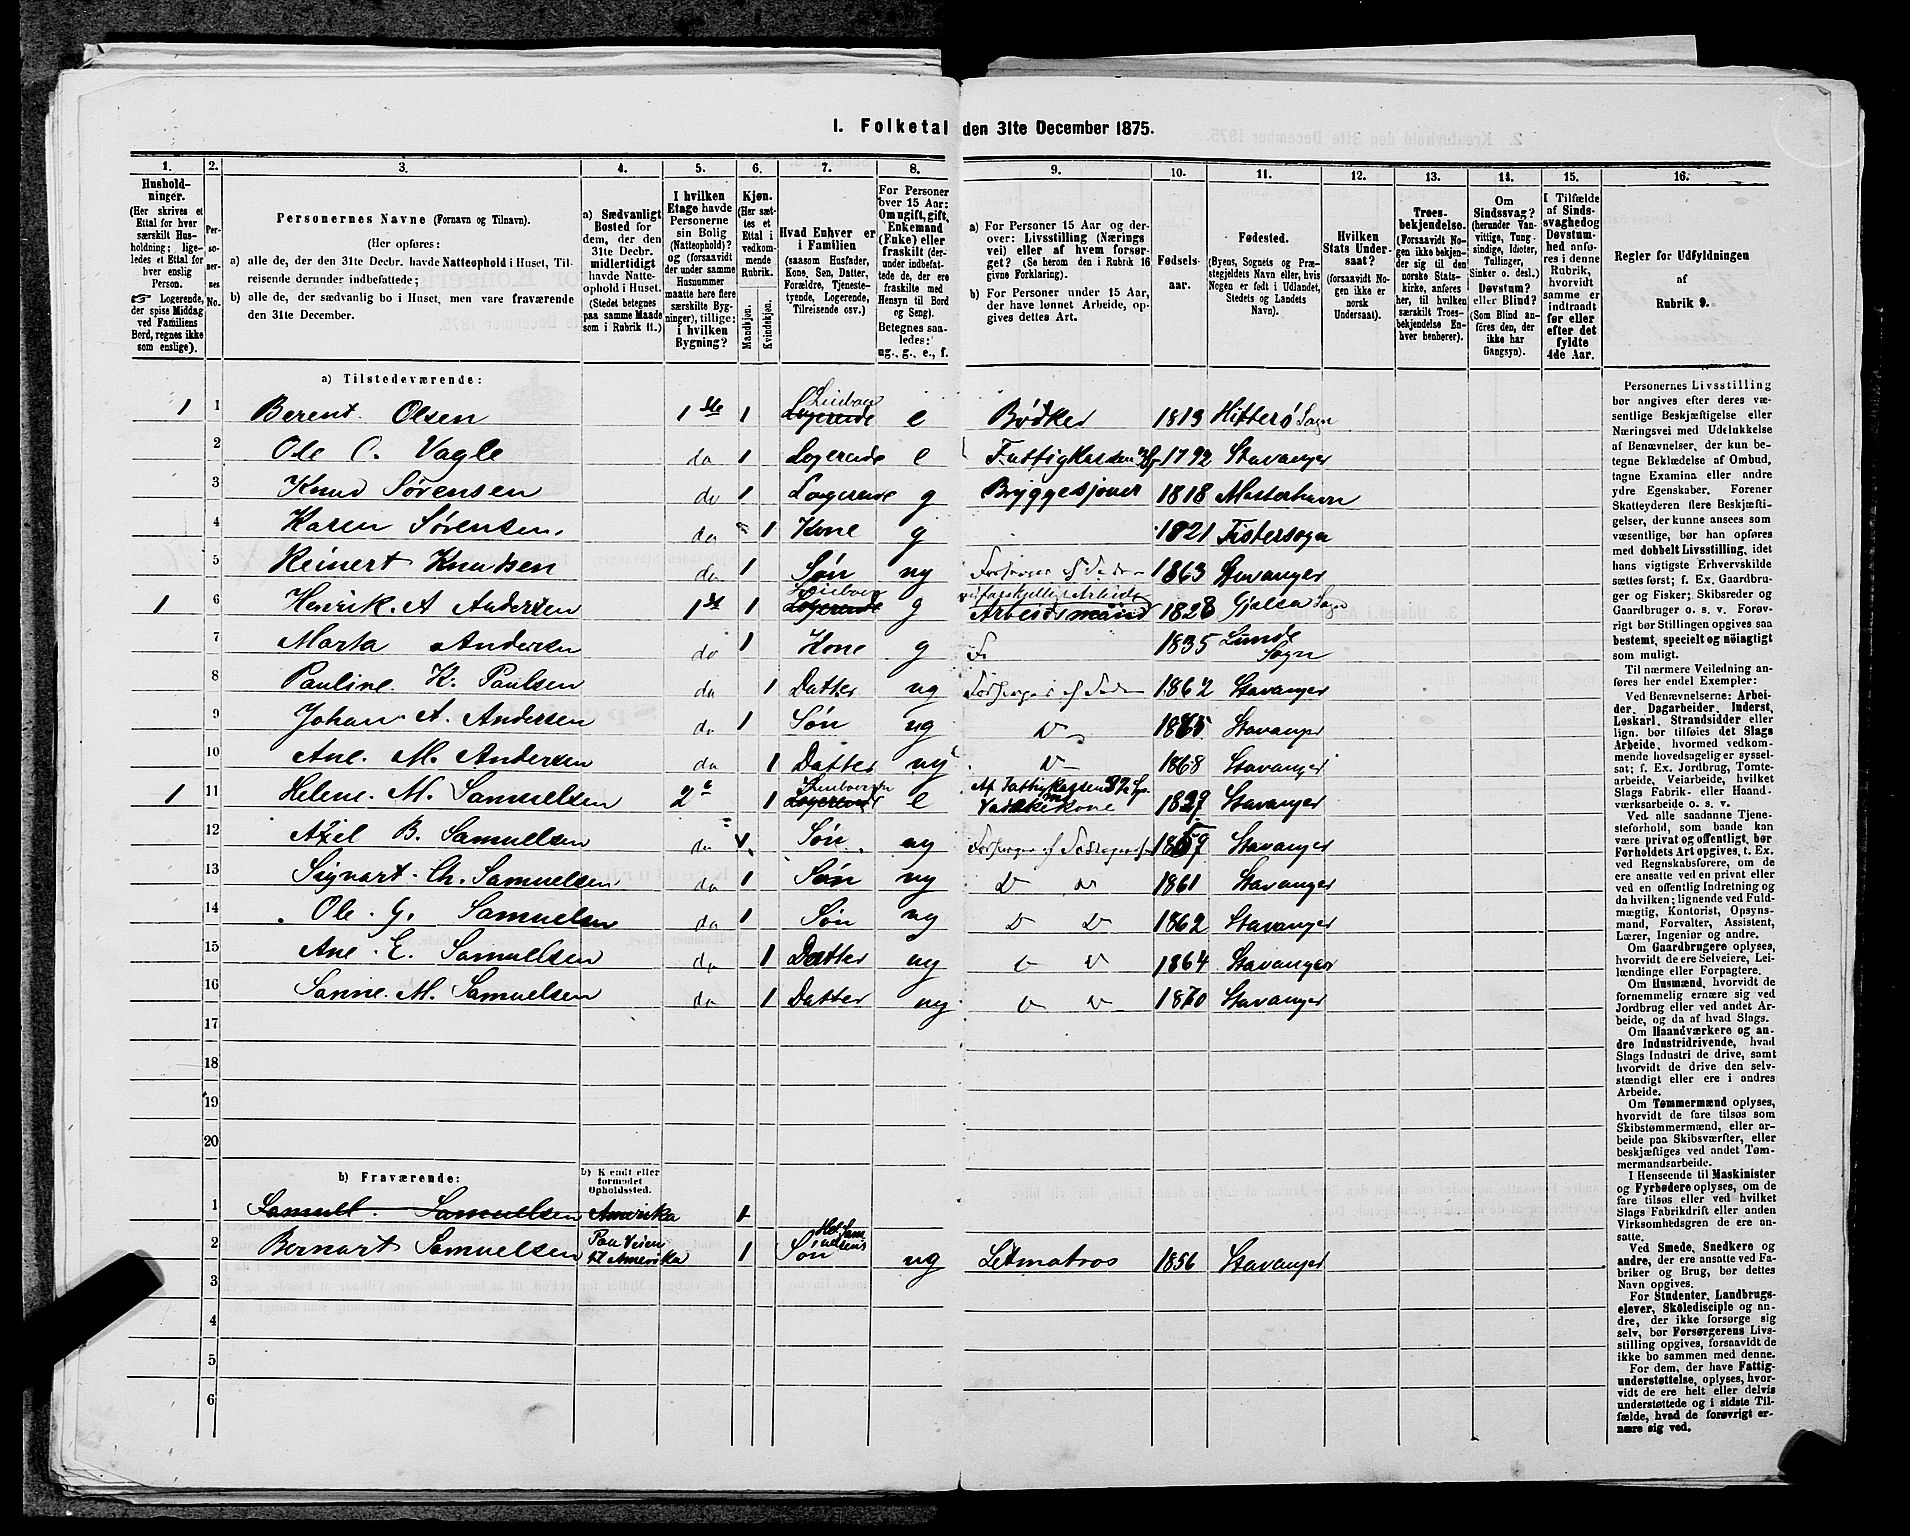 1. Folketal den 31te December 1875.
1. 2. 3. 4. 5. 6. 7. 8. 9. 10. 11. 12. 13. 14. 15. 16.
Hushold-
ninger.
(Her skrives et
Ettal for hver
særskilt Hus-
holdning; lige-
ledes et Ettal for
hver enslig
Person.
☞ Logerende,
der spise Middag
ved Familiens
Bord, regnes ikke
som enslige).
Per-
so-
ner-
nes
No.
Personernes Navne (Fornavn og Tilnavn).
(Her opføres:
a) alle de, der den 31te Decbr. havde Natteophold i Huset, Til-
reisende derunder indbefattede;
b) alle de, der sædvanlig bo i Huset, men vare fraværende
den 31te December.
a) Sædvanligt
Bosted for
dem, der den
31te Decbr.
midlertidigt
havde Natte-
ophold i Huset.
(Stedet betegnes
paa samme Maade
som i Rubrik 11.)
I hvilken
Etage havde
Personerne
sin Bolig
(Natteophold)?
og (forsaavidt
der under samme
Husnummer
maatte høre flere
særskilte Byg-
ninger), tillige:
i hvilken
Bygning?
Kjøn.
(Her sæt-
tes et
Ettal i
vedkom-
mende
Rubrik.
Mandkjøn.
Kvindekjøn.
Hvad Enhver er
i Familien
(saasom Husfader,
Kone, Søn, Datter,
Forældre, Tjeneste-
tyende, Logerende,
Tilreisende osv.)
For Personer
over 15 Aar:
Om ugift, gift,
Enkemand
(Enke) eller
fraskilt (der-
under indbefat-
tede de, der ere
fraskilte med
Hensyn til Bord
og Seng).
Betegnes saa-
ledes:
ug., g., e., f.
a) For Personer 15 Aar og der-
over: Livsstilling (Nærings
vei) eller af hvem forsør-
get? (Se herom den i Rubrik 16
givne Forklaring).
b) For Personer under 15 Aar,
der have lønnet Arbeide, op-
gives dettes Art.
Fødsels-
aar.
Fødested.
(Byens, Sognets og Præ-
stegjeldets Navn eller, hvis
Nogen er født i Udlandet,
Stedets og Landets
Navn).
Hvilken
Stats Under-
saat?
(forsaavidt No-
gen ikke er
norsk
Undersaat).
Troes-
bekjendelse.
(Forsaavidt No-
gen ikke bekjen-
der sig til den
norske Stats-
kirke, anføres
her, til hvilken
særskilt Troes-
bekjendelse En-
hver henhører).
Om
Sindssvag?
(herunder Van-
vittige, Tung-
sindige, Idioter,
Tullinger,
Sinker o. desl.)
Døvstum?
eller Blind?
(Som Blind an-
føres den, der
ikke har
Gangsyn).
I Tilfælde
af Sinds-
svaghed og
Døvstum-
hed anfø-
res i denne
Rubrik,
hvorvidt
samme er
indtraadt
før eller
efter det
fyldte
4de Aar.
Regler for Udfyldningen
af
Rubrik 9.
a) Tilstedeværende:
1 1 Berent Olsen 1ste 1 Logerende e Bødker 1813 Hitterø Sogn
2 Ole C. Vagle do 1 Logerende e Fattigkassen 1792 Stavanger
3 Knud Sørensen do 1 Logerende g Bryggesjouer 1818 Mosterhavn
4 Karen Sørensen do 1 Kone g 1821 Fistersogn
5 Reinert Knudsen do 1 Søn ug Forsørges af Fader 1863 Stavanger
1 6 Henrik A Andersen 1st 1 Logerende g Arbeidsmand 1828 Gjelsa Sogn
7 Marta Andersen do 1 Kone g 1835 Lunde Sogn
8 Pauline K. Paulsen do 1 Datter ug Forsørges af Fader 1862 Stavanger
9 Johan A. Andersen do 1 Søn ug D 1865 Stavanger
10 Ane M. Andersen do 1 Datter ug D 1868 Stavanger
1 11 Helene M. Samuelsen 2e 1 Logerende e Af Fattigkassen Vaskekone 1827 Stavanger
12 Axel B. Samuelsen do Søn ug 1859 Stavanger
13 Signart Ch. Samuelsen do 1 Søn ug D D 1861 Stavanger
14 Ole G. Samuelsen do 1 Søn ug D D 1862 Stavanger
15 Ane E. Samuelsen do 1 Datter ug D D 1864 Stavanger
16 Sanne M. Samuelsen do 1 Datter ug D D 1870 Stavanger
17
18
19
20
b) Fraværende:
b) Kendt eller
formodet
Opholdssted.
1 Samuel Samuelsen Amerika 1
2 Bernart Samuelsen Paa Veien til Amerika 1 Søn ug Letmatros 1856 Stavanger
3
4
5
6
Personernes Livsstilling
bør angives efter deres væ-
sentlige Beskjæftigelse eller
Næringsvei med Udelukkelse
af Benævnelser, der kun be-
tegne Beklædelse af Ombud,
tagne Examina eller andre
ydre Egenskaber. Forener
Skatteyderen flere Beskjæfti-
gelser, der kunne ansees som
væsentlige, bør han opføres
med dobbelt Livsstilling, idet
hans vigtigste Erhvervskilde
sættes først; f. Ex. Gaardbru-
ger og Fisker; Skibsreder og
Gaardbruger o. s. v. Forøv-
rigt bør Stillingen opgives saa
bestemt, specielt og nöiagtigt
som muligt.
Til nærmere Veiledning an-
føres her endel Exempler:
Ved Benævnelserne: Arbei-
der, Dagarbeider, Inderst,
Løskarl, Strandsidder eller
lign. bør tilføies det Slags
Arbeide, hvormed vedkom-
mende hovedsagelig er syssel-
sat; f. Ex. Jordbrug, Tomte-
arbeide, Veiarbeide, hvilket
Slags Fabrik- eller Haand-
værksarbeide o. s. v.
Ved alle saadanne Tjene-
steforhold, som baade kan
være privat og offentligt, bør
Forholdets Art opgives, t. Ex.
ved Regnskabsførere, om de
ere ansatte ved en privat eller
ved en offentlig Indretning og
da hvilken; lignende ved Fuld-
mægtig, Kontorist, Opsyns-
mand, Forvalter, Assistent,
Lærer, Ingeniør og andre.
Om Gaardbrugere oplyses,
hvorvidt de ere Selveiere, Lei-
lændinge eller Forpagtere.
Om Husmænd, hvorvidt de
fornemmelig ernære sig ved
Jordbrug eller ved andet Ar-
beide, og da af hvad Slags.
Om Haandværkere og an-
dre Industridrivende, hvad
Slags Industri de drive, samt
hvorvidt de drive den selv-
stændigt eller ere i andres
Arbeide.
Om Tømmermænd oplyses,
hvorvidt de fare tilsøs som
Skibstømmermænd, eller ar-
beide paa Skibsværfter, eller
beskjæftiges ved andet Tøm-
mermandsarbeide.
I Henseende til Maskinister
og Fyrbødere oplyses, om de
fare tilsøs eller ved hvilket
Slags Fabrikdrift eller anden
Virksomhedsgren de ere an-
satte.
Ved Smede, Snedkere og
andre, der ere ansatte ved Fa-
briker og Brug, bør dettes
Navn opgives.
For Studenter, Landbrugs-
elever, Skoledisciple og an-
dre, der ikke forsørge sig
selv, bør Forsørgerens Livs-
stilling opgives, forsaavidt de
ikke bo sammen med denne.
For dem, der have Fattig-
understøttelse, oplyses, hvor-
vidt de ere helt eller delvis
understøttede og i sidste Til-
fælde, hvad de forøvrigt er-
nære sig ved.